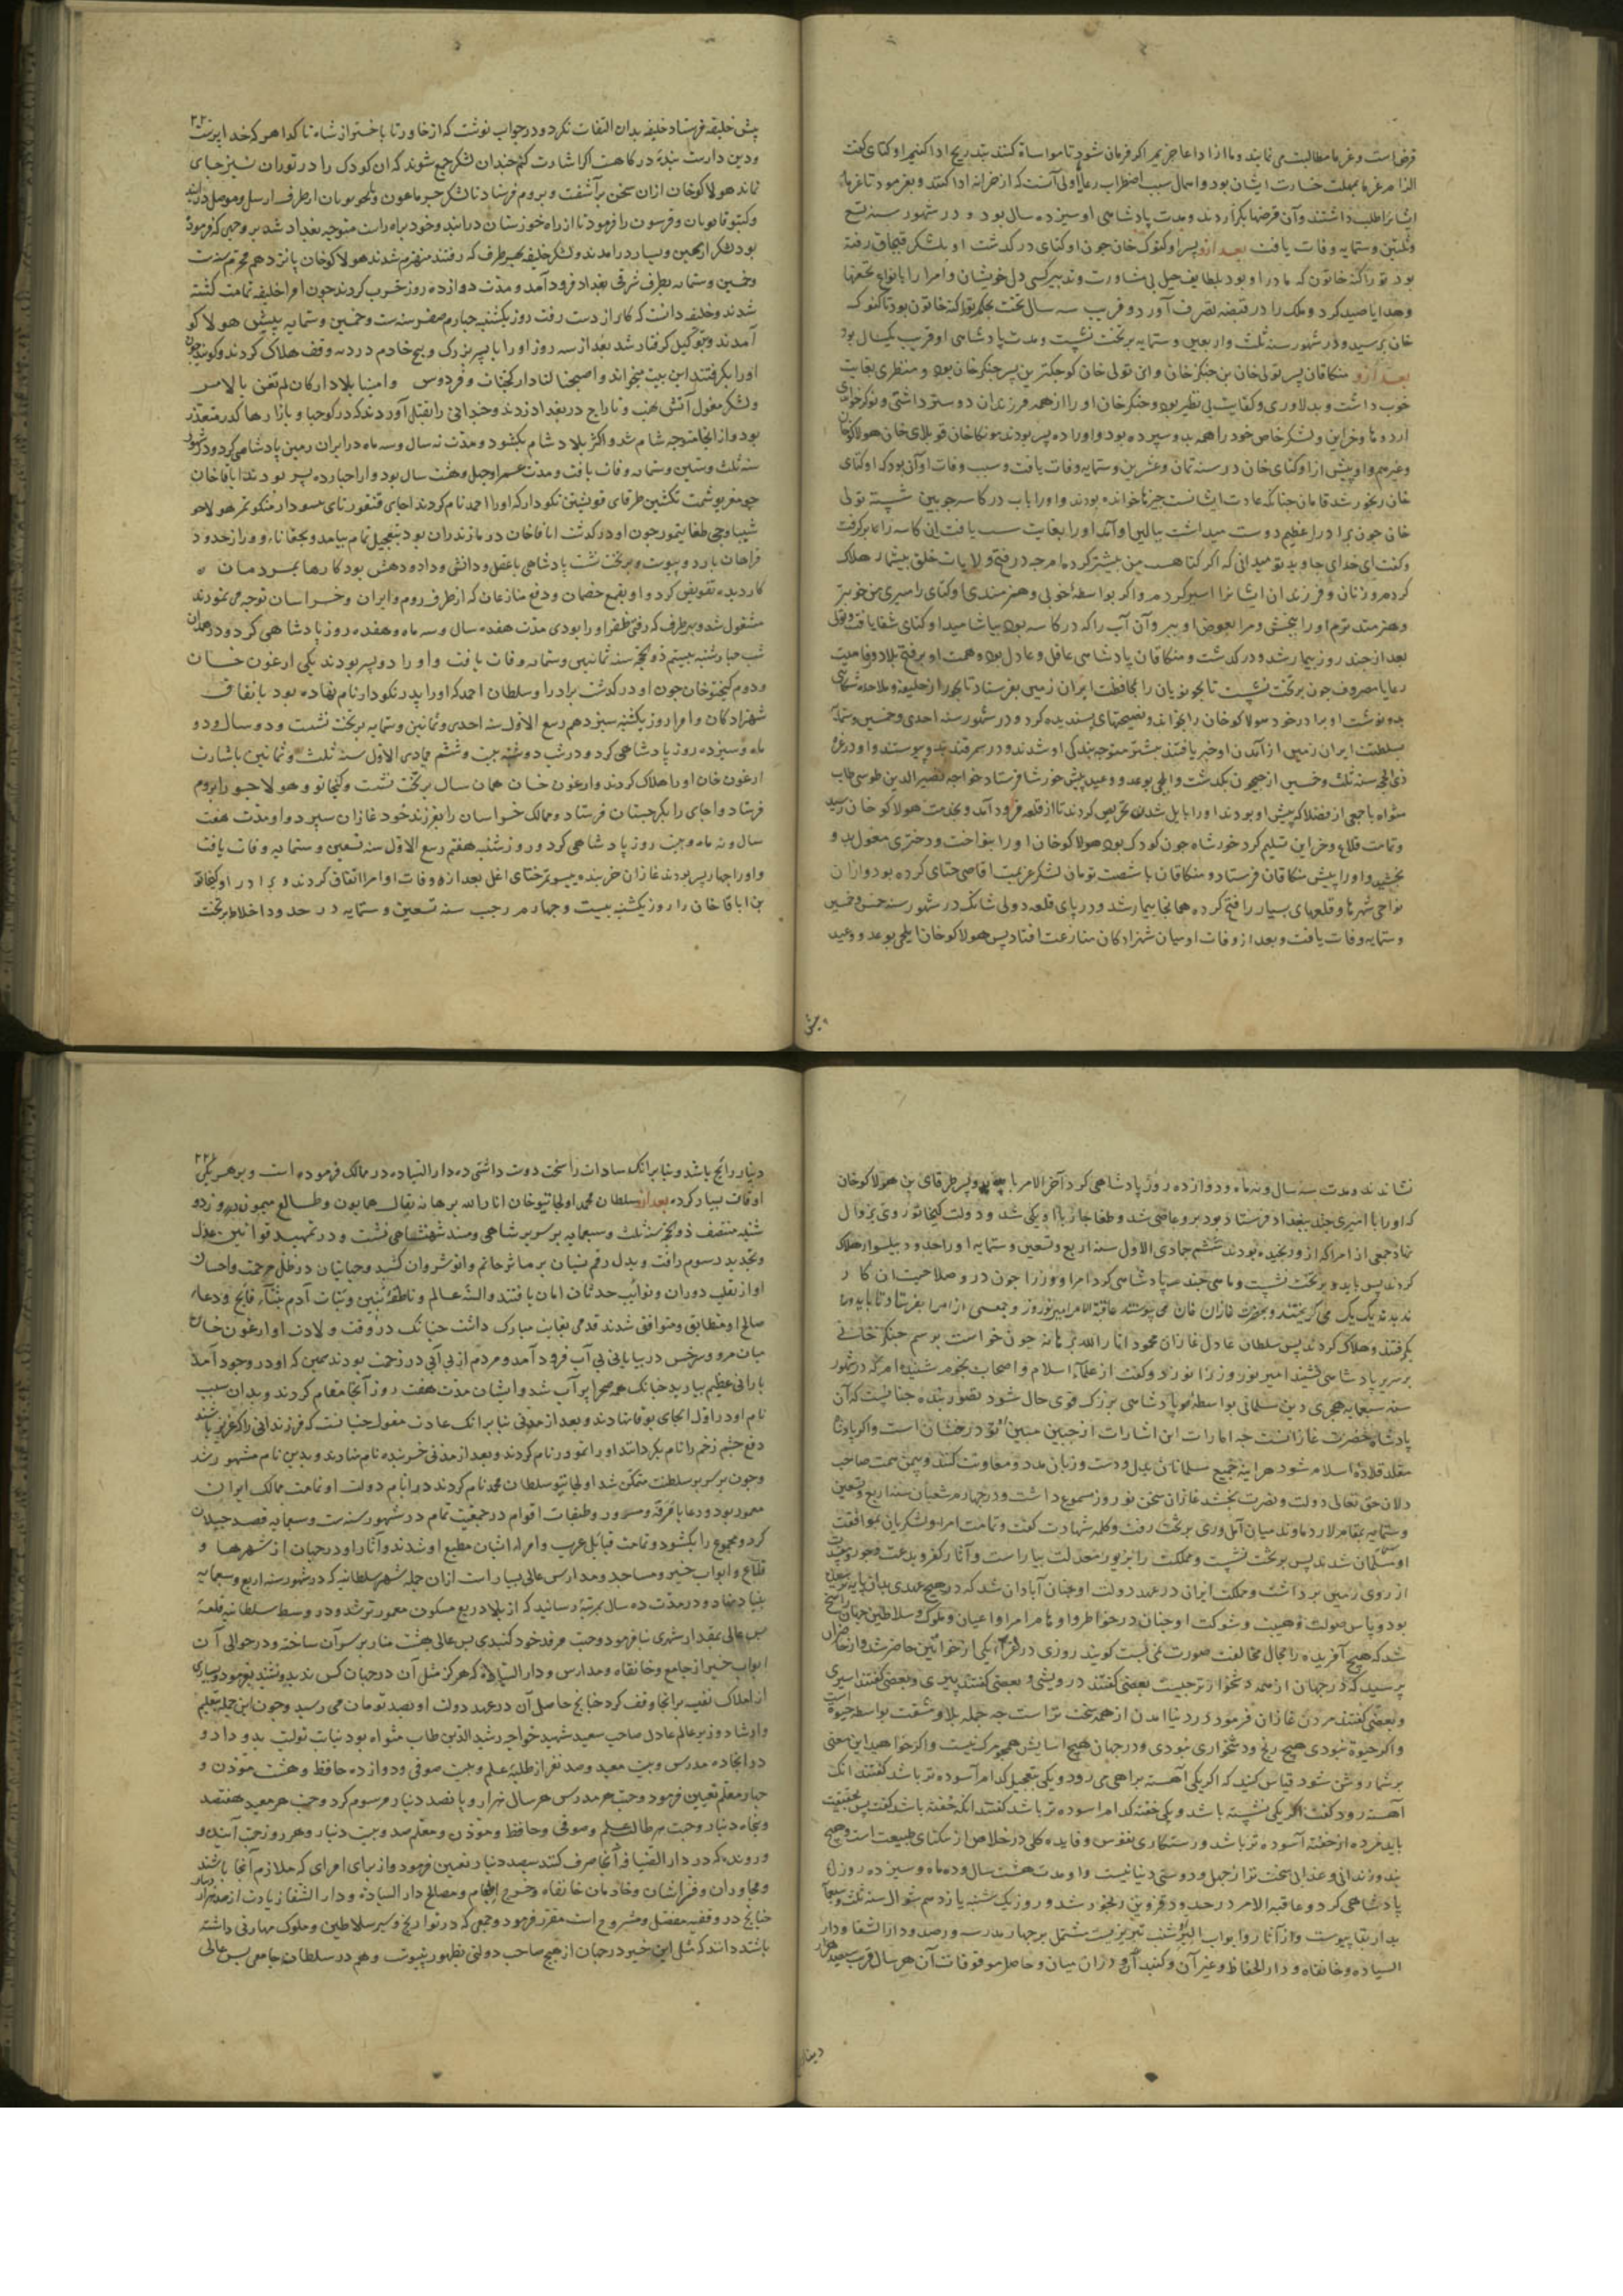 قرض است و غرما مطالبت می نمایند و ما از ادا عاجزیم اگر فرمان شود تا مواساة کنند بتدریج ادا کنیم اوکتای گفت
الزام غرما بمهلت خسارت ایشان بود و اهمال سبب اضطراب رعایا اولی آنست که از خزانه ادا کنند و بفرمود تا غرماء
ایشانرا طلب داشتند و آن قرضها بگزاردند و مدت پادشاهی او سیزده سال بود و در شهور سنه تسع
وثلثین وستمایه وفات یافت بعد ازو پسر او کیوک خان چون اوکتای درگذشت او بلشکر قبچاق رفته
بود توراکنه خاتون که مادر او بود بلطایف حیل بی مشاورت و تدبیر کسی دل خویشان و امرا را بانواع تحفها
و هدایا صید کرد و ملک را در قبضه تصرف آورد و قریب سه سال تخت بحکم توراکنه خاتون بود تا کیوک
خان برسید و در شهور سنه ثلث واربعین وستمایه بر تخت نشست و مدت پادشاهی او قریب یک سال بود
بعد ازو منکاقاآن پسر تولی خان بن جنکز خان و این تولی خان کوچکترین پسر جنکز خان بود و منظری بغایت
خوب داشت و بدلاوری و کفایت بی نظیر بود و جنکز خان او را از همه فرزندان دوستر داشتی و نوکر خواندی
اردوها و خزاین و لشکر خاص خود را همه بدو سپرده بود و او را ده پسر بودند مونکاخان قوبلای خان هولاکوخان
وغیرهم و او پیش از اوکتای خان در سنه ثمان وعشرین وستمایه وفات یافت و سبب وفات او آن بود که اوکتای
خان رنجور شد قامان چنانکه عادت ایشانست چیزها خوانده بودند و او را باب در کاسه چوبین شسته تولی
خان چون برادر را عظیم دوست میداشت ببالین او آمد او را بغایت سست یافت این کاسه را برگرفت
و گفت ای خدای جاوید تو میدانی که اگر گناهست من بیشتر کرده ام چه در فتح ولایات خلق بیشمار هلاک
کردم و زنان و فرزندان ایشانرا اسیر کردم و اگر بواسطه خوبی و هنرمندی اوکتای را میبری من خوبتر
وهنرمندترم او را ببخش و مرا بعوض او ببر و آن آب را که در کاسه بود بیاشامید اوکتای شفا یافت و تولی
بعد از چند روز بیمار شد و درگذشت و منکاقاآن پادشاهی عاقل و عادل بود و همت او بر فتح بلاد و رفاهیت
رعایا مصروف چون بر تخت نشست تایجونویان را بمحافظت ایران زمین بفرستاد تایجو از خلیفه و ملاحده شکایتی
بدو نوشت او برادر خود هولاکوخان را بخواند و نصیحتهای پسندیده کرد و در شهور سنه احدی وخمسین وستمایه
بسلطنت ایران زمین از آمدن او خبر یافتند بیشتر متوجه بندگی او شدند و در سمرقند بدو پیوستند و او در غرّه
ذی الحجه سنه ثلث وخمسین از جیحون بگذشت و ایلچی بوعد و وعید پیش خورشاه فرستاد خواجه نصیرالدین طوسی طاب
مثواه با جمعی از فضلا که پیش او بودند او را بایل شدن تحریص کردند تا از قلعه فرود آمد و بخدمت هولاکو خان رسید
و تمامت قلاع و خزاین تسلیم کرد خورشاه چون کودک بود هولاکوخان او را بنواخت و دختری مغول بدو
بخشید و او را پیش منکاقاآن فرستاد و منکاقاآن با شصت تومان لشکر عزیمت اقاصی ختای کرده بود و از ان
نواحی شهرها و قلعهای بسیار را فتح کرده همانجا بیمار شد و در پای قلعه دولی شانک در شهور سنه خمس وخمسین
وستمایه وفات یافت و بعد از وفات او میان شهزادگان منازعت افتاد پس هولاکوخان ایلچی بوعد و وعید
پیش
۲۲۰
پیش خلیفه فرستاد خلیفه بدان التفات نکرد و در جواب نوشت که از خاور تا باختر از شاه تا گدا هر که خداپرست
و دین دارست بنده درگاهست اگر اشارت کنم چندان لشکر جمع شوند که ان کودک را در توران نیز جای
نماند هولاکوخان ازان سخن برآشفت و بروم فرستاد تا لشکر از طرف اربیل و موصل درآیند
و کیتوقانویان و را فرمود تا از راه خوزستان درآیند و خود براه راست متوجه بغداد شد بر وجهی که فرموده
بود لشکر از یمین ویسار درآمدند و لشکر خلیفه بهر طرف که رفتند منهزم شدند هولاکوخان پانزدهم محرم سنه ست
وخمسین وستمایه بطرف شرقی بغداد فرود آمد و مدت دوازده روز حرب کردند چون امراء خلیفه تمامت کشته
شدند و خلیفه دانست که کار از دست رفت روز یکشنبه چهارم صفر سنه ست وخمسین وستمایه پیش هولاکو
آمدند و بتوکیل گرفتار شد بعد از سه روز او را با پسر بزرگ و پنج خادم در دیه وقف هلاک کردند و گویند چون
او را بگرفتند این بیت میخواند واصبحنا لنا دار کجنات وفردوس وامسینا بلا دار کان لم تغن بالامس
و لشکر مغول آتش نهب و تاراج در بغداد زدند و چندانی را بقتل آوردند که در کوچها و بازارها گذر متعذر
بود و از انجا متوجه شام شد و اکثر بلاد شام بگشود و مدت نه سال و سه ماه در ایران زمین پادشاهی کرد و در شهور
سنه ثلث وستین وستمایه وفات یافت و مدت عمر او چهل و هشت سال بود و او را دوازده پسر بودند اباقاخان
جومغر یوشمت تکشین طرقای توبشین تکودار که او را احمد نام کردند اجای قنقورتای یسودار منکوتمر هولاجو
شیباوجی طغاتیمور چون او درگذشت اباقاخان در مازندران بود بتعجیل تمام بیامد و بجغاتاء
باردو پیوست و بر تخت نشست پادشاهی با عقل و دانش و داد و دهش بود کارها بمردمان
کاردیده تفویض کرد و او بقمع خصمان و دفع منازعان که از طرف روم و ایران و خراسان توجه می نمودند
مشغول شد و بهر طرف که رفتی مظفر او را بودی مدت هفده سال و سه ماه و هفده روز پادشاهی کرد و در همدان
شب چهارشنبه بیستم ذوالحجه سنه ثمانین وستمایه وفات یافت و او را دو پسر بودند یکی ارغون خان
ودوم کیخاتوخان چون او درگذشت برادر او سلطان احمد که او را پدر تکودار نام نهاده بود باتفاق
شهزادگان و امرا روز یکشنبه سیزدهم ربیع الاول سنه احدی وثمانین وستمایه بر تخت نشست و دو سال و دو
ماه و سیزده روز پادشاهی کرد و در شب دوشنبه بیست و ششم جمادی الاول سنه ثلث وثمانین باشارت
ارغون خان او را هلاک کردند و ارغون خان همان سال بر تخت نشست و کیخاتو و هولاجو را بروم
فرستاد و اجای را بگرجستان فرستاد و ممالک خراسان را بفرزند خود غازان سپرد و او مدت هفت
سال و نه ماه و بیست روز پادشاهی کرد و روز شنبه هفتم ربیع الاول سنه تسعین وستمایه وفات یافت
و او را چهار پسر بودند غازان خربنده ییسوتمر ختای اغل بعد از وفات او امرا اتفاق کردند و برادر او کیخاتو
بن اباقاخان را روز یکشنبه بیست و چهارم رجب سنه تسعین وستمایه در حدود اخلاط بر تخت
نشاندند و مدت سه سال و نه ماه و دوازده روز پادشاهی کرد آخر الامر بایدو پسر طرقای بن هولاکوخان
که او را با امیری چند ببغداد فرستاده بود بروعاصی شد و طغاجار با او یکی شد و دولت کیخاتو روی بزوال
نهاد جمعی از امرا که ازو رنجیده بودند ششم جمادی الاول سنه اربع وتسعین وستمایه او را در حدود بیلسوار هلاک
کردند پس بایدو بر تخت نشست و ماهی چند پادشاهی کرد امرا و وزرا چون درو صلاحیت ان کار
ندیدند یک یک می گریختند و بحضرت غازان خان می پیوستند عاقبة الامر امیر نوروز و جمعی از امرا بفرستاد تا بایدو را
بگرفتند و هلاک کردند پس سلطان عادل غازان محمود انار الله برهانه چون خواست برسم جنکز خانی
بر سریر پادشاهی نشیند امیر نوروز زانو زد و گفت از علماء اسلام و اصحاب نجوم شنیده ام که در شهور
سنه تسعین هجری دین مسلمانی بواسطه پادشاهی بزرگ قوی حال شود تصور بنده چنانست که آن
پادشاه حضرت غازانست چه امارات این اشارات از جبین مبین او درخشان است و اگر پادشاه
مقلد قلاده اسلام شود هراینه جمیع مسلمانان بدل ودست و زبان مدد و معاونت کنند و بیمن همت صاحب
دلان حق تعالی دولت و نصرت بخشد غازان سخن نوروز مسموع داشت و در چهارم شعبان سنه اربع وتسعین
وستمایه بمقام لار دماوند میان بر تخت رفت و کلمه شهادت گفت و تمامت امرا و لشکریان بموافقت
او مسلمان شدند پس بر تخت نشست و مملکت را بزیور معدلت بیاراست و آثار کفر و بدعت و فجور و معصیت
از روی زمین برداشت و مملکت ایران در عهد دولت او چنان آبادان شد که در هیچ عهدی بدان پایه نرسیده
بود و باس صولت و هیبت و شوکت او چنان در خواطر و اوهام امرا و اعیان و ملوک و سلاطین جهان راسخ
شد که هیچ آفریده را مجال مخالفت صورت نمی بست گویند روزی در یکی از خواتین حاضر شد و از حاضران
پرسید که در جهان از همه دشخوارتر چیست بعضی گفتند درویشی و بعضی گفتند پیری و بعضی گفتند اسیری
و بعضی گفتند مردن غازان فرمود در دنیا آمدن از همه سخت ترست چه جمله بلا و مشقت بواسطه حیوة است
و اگر حیوة نبودی هیچ رنج و دشخواری نبودی و در جهان هیچ آسایش همچو مرگ نیست و اگر خواهید این معنی
بر شما روشن شود قیاس کنید که اگر یکی آهسته براهی می رود و یکی بتعجیل کدام آسوده تر باشد گفتند انک
آهسته رود گفت اگر یکی نشسته باشد و یکی خفته کدام آسوده تر باشد گفتند انکه خفته باشد گفت پس بحقیقت
باید مرده از خفته آسوده تر باشد و رستگاری نفوس و فایده کلی در خلاص از سکنای طبیعت است و هیچ
بند و زندانی و عذابی سخت تر از جهل و دوستی دنیا نیست و او مدت هشت سال و ده ماه و سیزده روز
پادشاهی کرد و عاقبة الامر در حدود قزوین رنجور شد و روز یک شنبه یازدهم شوال سنه ثلث وسبعمایه
بدار بقا پیوست و از آثار او ابواب البر شنب تبریزست مشتمل بر چهار مدرسه و رصد و دار الشفا و دار
السیاده و خانقاه و دار الحفاظ و غیر آن و گنبد او در ان میان و حاصل موقوفات آن هر سال قرب سیصد هزار
دینار
۲۲۱
دینار رایج باشد و بنا برانک سادات را سخت دوست داشتی ده دار السیاده در ممالک فرموده است و بر هر یکی
اوقاف بسیار کرده بعد ازو سلطان محمد اولجایتوخان انار الله برهانه بفال همایون و طالع میمون در روز دو
شنبه منتصف ذوالحجه سنه ثلث وسبعمایه بر سریر شاهی ومسند شهنشاهی نشست و در تمهید قوانین عدل
وتجدید رسوم رافت و بذل رقم نسیان بر مآثر حاتم وانوشروان کشید و جهانیان در ظل مرحمت واحسان
او از تقلب دوران و نوائب حدثان امان یافتند والسنه عالم و ناطقه بنین و بنات آدم بثناء فایح و دعاء
صالح او متطابق و متوافق شدند قدمی بغایت مبارک داشت چنانک در وقت ولادت او ارغون خان
میان مرو و سرخس در بیابانی بی آب فرود آمد و مردم از بی آبی در زحمت بودند همین که او در وجود آمد
بارانی عظیم بیارید چنانک همه صحرا پر آب شد و ایشان مدت هفت روز آنجا مقام کردند و بدان سبب
نام او در اول نهادند و بعد از مدتی بنا برانک عادت مغول چنانست که فرزندانی را که عزیز باشند
دفع چشم زخم را نام بگردانند او را تمودر نام کردند و بعد از مدتی خربنده نام نهادند و بدین نام مشهور شد
و چون بر سریر سلطنت متمکن شد اولجایتو سلطان محمد نام کردند در ایام دولت او تمامت ممالک ایران
معمور بود و رعایا مرفه و مسرور و طبقات اقوام در جمعیت تمام در شهور سنه ست وسبعمایه قصد جیلان
کرد و مجموع را بگشود و تمامت قبایل عرب و امراء ایشان مطیع او شدند و آثار او در جهان از شهرها و
قلاع و ابواب خیر و مساجد و مدارس عالی بسیارست ازان جمله شهر سلطانیه که در شهور سنه اربع وسبعمایه
بنیاد نهاد و در مدت ده سال بمرتبه رسانید که از بلاد ربع مسکون معمورتر شد و در وسط سلطانیه قلعه
بس عالی بمقدار شهری بنا فرمود و جهت مرقد خود گنبدی بس عالی هشت منار بر سر آن ساخته و در حوالی آن
ابواب خیر از جامع و خانقاه و مدارس و دار السیاده که هرگز مثل آن در جهان کس ندید ونشنید بفرمود و بسیاری
از املاک نفیس برانجا وقف کرد چنانچ حاصل آن در عهد دولت او بصد تومان می رسید و چون این جمله بتعلیم
وارشاد وزیر عالم عادل صاحب سعید شهید خواجه رشید الدین طاب مثواه بود نیابت تولیت بدو داد و
در انجا ده مدرس و بیست معید و صد نفر از طلبه علم و بیست صوفی و دوازده حافظ و هشت موذن و
چهار معلم تعیین فرمود و جهت هر مدرس هر سال هزار و پانصد دینار مرسوم کرد و جهت هر معید هفتصد
و پنجاه دینار و جهت هر طالب علم و صوفی وحافظ و موذن و معلم صد و بیست دینار و هر روز جهت آینده و
رونده که در دار الضیافه آنجا صرف کنند سیصد دینار تعیین فرمود و از برای امرای که ملازم آنجا باشند
و مجاوران و فراشان وخادمان خانقاه و خرج اطعام و مصالح دار السیادة و دار الشفا زیادت از صد هزار دینار
چنانچ در وقفیه مفصل و مشروح است مقرر فرمود و جمعی که در تواریخ و سیر سلاطین و ملوک مهارتی داشته
باشند دانند که مثل این خیر در جهان از هیچ صاحب دولتی بظهور نپیوست و هم در سلطانیه جامعی بس عالی